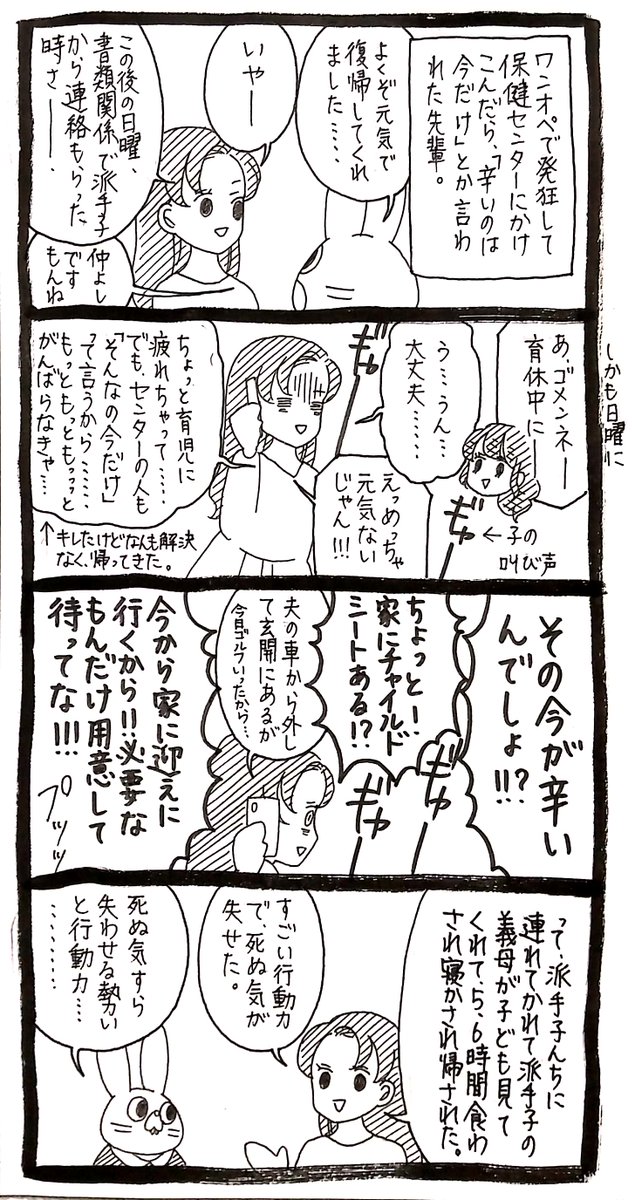 ワンオペで発狂して
保健センターにかけ
こんだら、「辛いのは
今だけ」とか言わ
れた先輩。
よくぞ元気で
復帰してくれ
ました……
いやー
この後の日曜、
書類関係で派手子
から連絡もらった
時さー、
仲よし
です
もんね
しかも日曜に
あ、ゴメンネー
育休中に
う…うん…
大丈夫……
ギャ
ギャ
←子の
叫び声
えっめっちゃ
元気ない
じゃん!!!
ちょっと育児に
疲れちゃって……
でも、センターの人も
「そんなの今だけ」
って言うから……
もっともっともっっっと
がんばらなきゃ…
↑キレたけどなんも解決
なく、帰ってきた。
その今が辛い
んでしょ!!?
ちょっとー!
家にチャイルド
シートある!?
ギャ
ギャ
夫の車から外し
て玄関にあるが
今日ゴルフいったから…
今から家に迎えに
行くから!!必要な
もんだけ用意して
待ってな!!!
プツッ
って、派手子んちに
連れてかれて派手子の
義母が子ども見て
くれて、5、6時間食わ
され寝かされ帰された。
すごい行動力
で、死ぬ気が
失せた。
死ぬ気すら
失わせる勢い
と行動力……
………